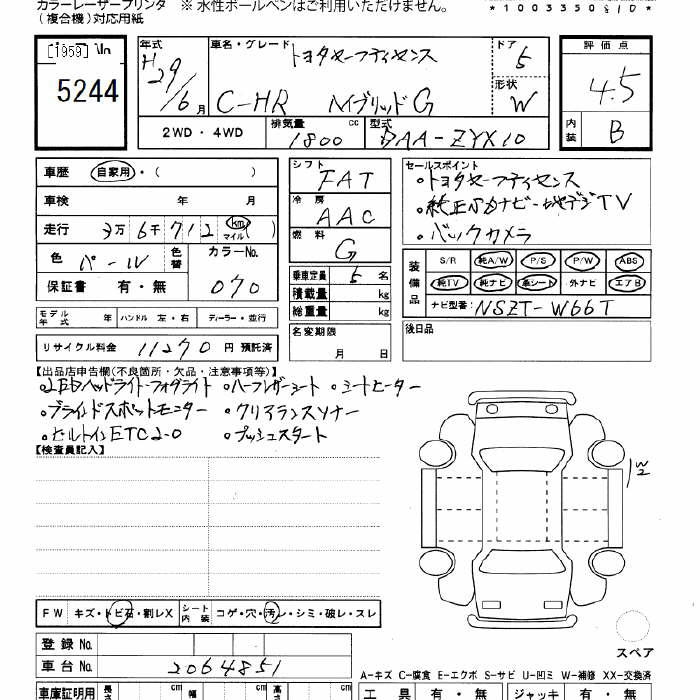 カラーレーザープリンタ ※ 水性ボールペンはご利用いただけません。
(複合機)対応用紙
*1003350210*
[1959] 年式 車名・グレード トヨタセーフティセンス ドア 評価点
5244 H29/6月 C-HR ハイブリッドG 5 形状 W 4.5
2WD・4WD 排気量 1800 cc 型式 DAA-ZYX10 内装 B
車歴 自家用・( ) シフト FAT セールスポイント
車検 年 月 冷房 AAC ・トヨタセーフティセンス
走行 3万6千712 km マイル ( ) 燃料 G ・純正SDナビ・地デジTV
色 パール 色替 カラーNo. 070 ・バックカメラ
保証書 有・無 乗車定員 5 名 装備品 S/R 純A/W P/S P/W ABS
積載量 kg 純TV 純ナビ 革シート 外ナビ エアB
総重量 kg ナビ型番: NSZT-W66T
モデル年式 年 ハンドル 左・右 ディーラー・並行 名変期限 月 日 後日品
リサイクル料金 11270 円 預託済
【出品店申告欄(不良箇所・欠品・注意事項等)】
・LEDヘッドライト・フォグライト ・ハーフレザーシート ・シートヒーター
・ブラインドスポットモニター ・クリアランスソナー
・ビルトインETC2.0 ・プッシュスタート
【検査員記入】
W2
FW キズ・トビ石・割レX シート内装 コゲ・穴・汚レ・シミ・破レ・スレ
登録No.
車台No. 2064851
スペア
A-キズ C-腐食 E-エクボ S-サビ U-凹ミ W-補修 XX-交換済
車庫証明用 長さ cm 幅 cm 高さ cm 工具 有・無 ジャッキ 有・無